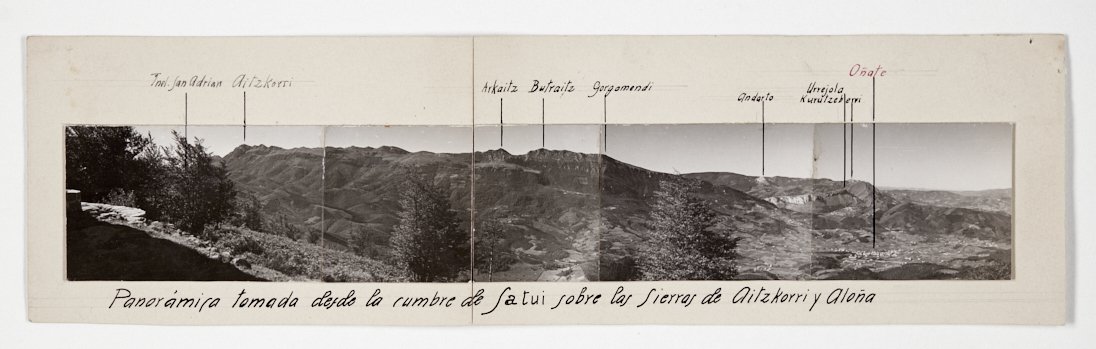 Tnel. San Adrian Aitzkorri
Arkaitz Butraitz Gorgomendi
Andarto
Urrejola
Kurutzeberri
Oñate
Panorámica tomada desde la cumbre de Satui sobre las Sierras de Aitzkorri y Aloña